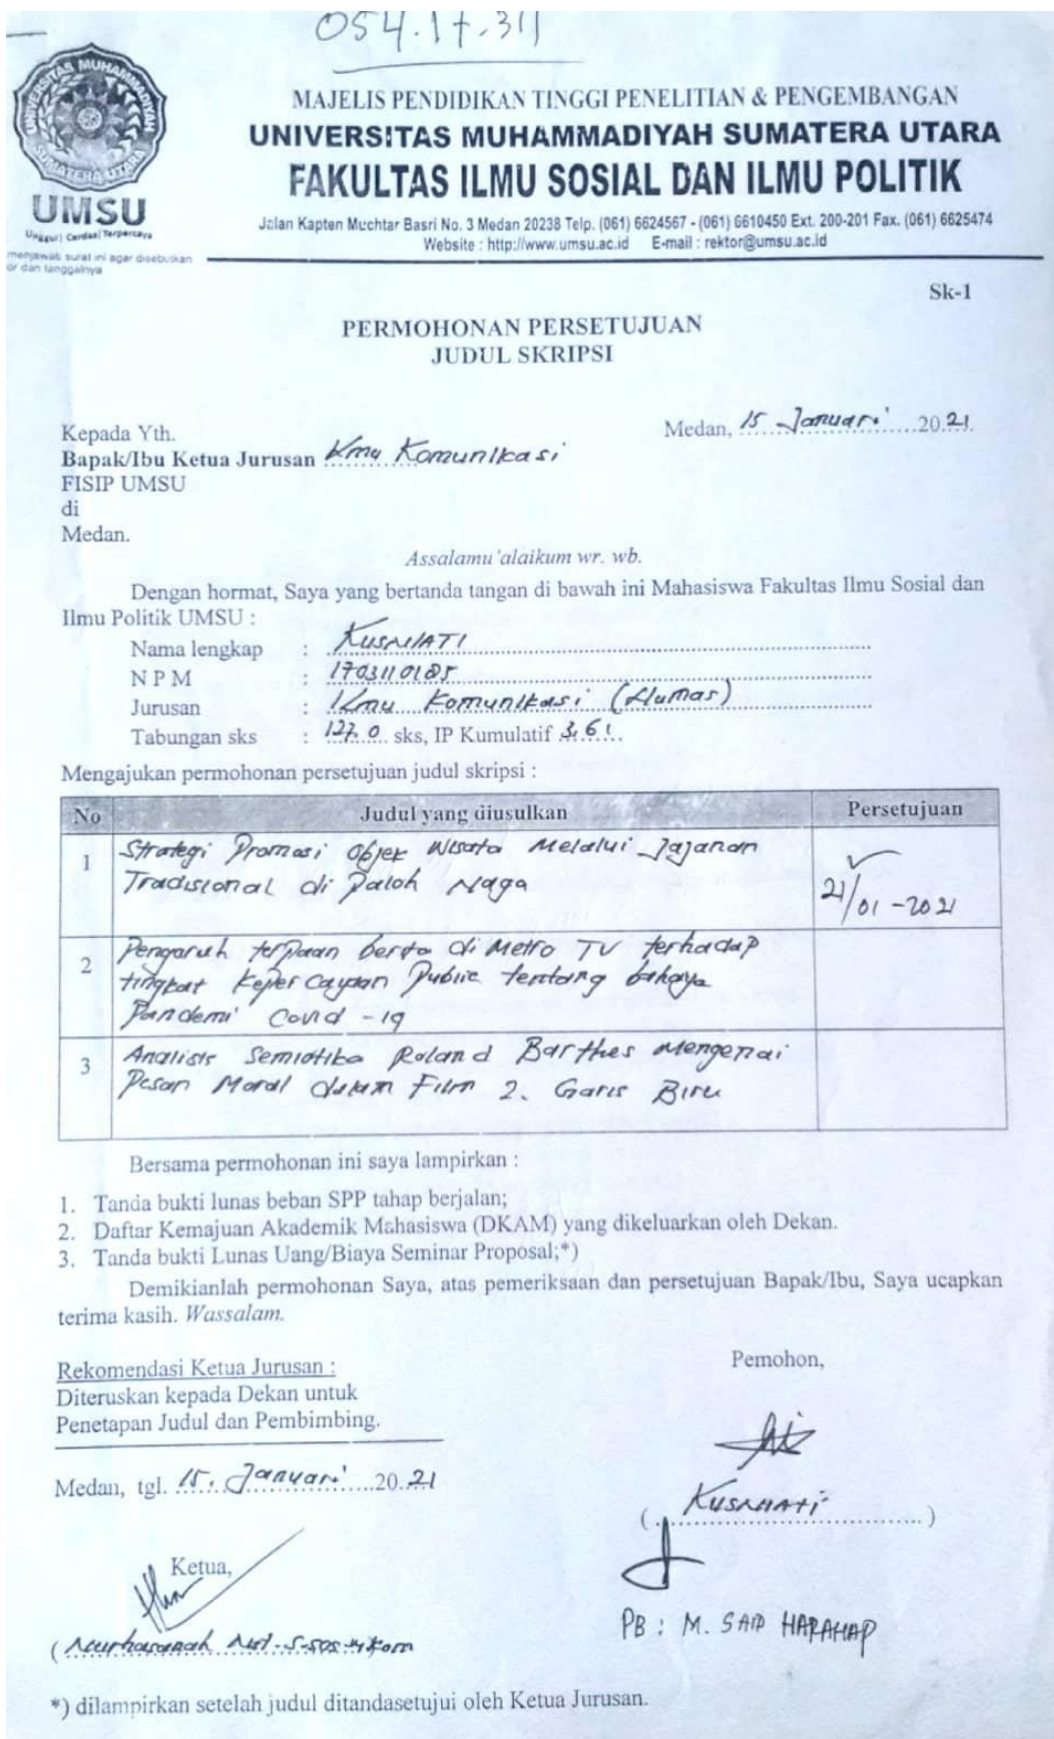 054.17.311
UNIVERSITAS MUHAMMADIYAH
SUMATERA UTARA
UMSU
Unggul | Cerdas | Terpercaya
menjawab surat ini agar disebutkan
or dan tanggalnya
MAJELIS PENDIDIKAN TINGGI PENELITIAN & PENGEMBANGAN
UNIVERSITAS MUHAMMADIYAH SUMATERA UTARA
FAKULTAS ILMU SOSIAL DAN ILMU POLITIK
Jalan Kapten Muchtar Basri No. 3 Medan 20238 Telp. (061) 6624567 - (061) 6610450 Ext. 200-201 Fax. (061) 6625474
Website : http://www.umsu.ac.id E-mail : rektor@umsu.ac.id
Sk-1
PERMOHONAN PERSETUJUAN
JUDUL SKRIPSI
Medan, 15 Januari 2021
Kepada Yth.
Bapak/Ibu Ketua Jurusan Ilmu Komunikasi
FISIP UMSU
di
Medan.
Assalamu'alaikum wr. wb.
Dengan hormat, Saya yang bertanda tangan di bawah ini Mahasiswa Fakultas Ilmu Sosial dan
Ilmu Politik UMSU :
Nama lengkap : KUSNIATI
N P M : 1703110185
Jurusan : Ilmu Komunikasi (Humas)
Tabungan sks : 127.0 sks, IP Kumulatif 3.61
Mengajukan permohonan persetujuan judul skripsi :
No Judul yang diusulkan Persetujuan
1 Strategi Promosi Objek Wisata Melalui Jajanan
Tradisional di Paloh Naga
✓
21/01-2021
2 Pengaruh terpaan berita di Metro TV terhadap
tingkat Kepercayaan Public tentang bahaya
Pandemi Covid-19
3 Analisis Semiotika Roland Barthes Mengenai
Pesan Moral dalam Film 2. Garis Biru
Bersama permohonan ini saya lampirkan :
1. Tanda bukti lunas beban SPP tahap berjalan;
2. Daftar Kemajuan Akademik Mahasiswa (DKAM) yang dikeluarkan oleh Dekan.
3. Tanda bukti Lunas Uang/Biaya Seminar Proposal;*)
Demikianlah permohonan Saya, atas pemeriksaan dan persetujuan Bapak/Ibu, Saya ucapkan
terima kasih. Wassalam.
Rekomendasi Ketua Jurusan :
Diteruskan kepada Dekan untuk
Penetapan Judul dan Pembimbing.
Medan, tgl. 15. Januari 2021
Ketua,
(Nurhasanah Nst. S.sos. M.Ikom
Pemohon,
( Kusniati )
PB : M. SAID HARAHAP
*) dilampirkan setelah judul ditandasetujui oleh Ketua Jurusan.